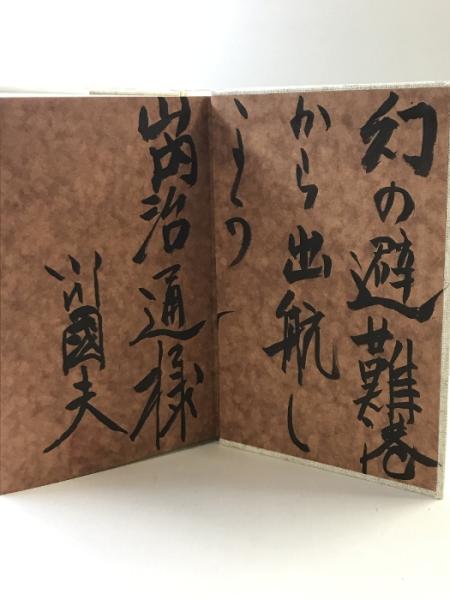 幻の避難港
から出航し
よう
山内治通様
小川國夫